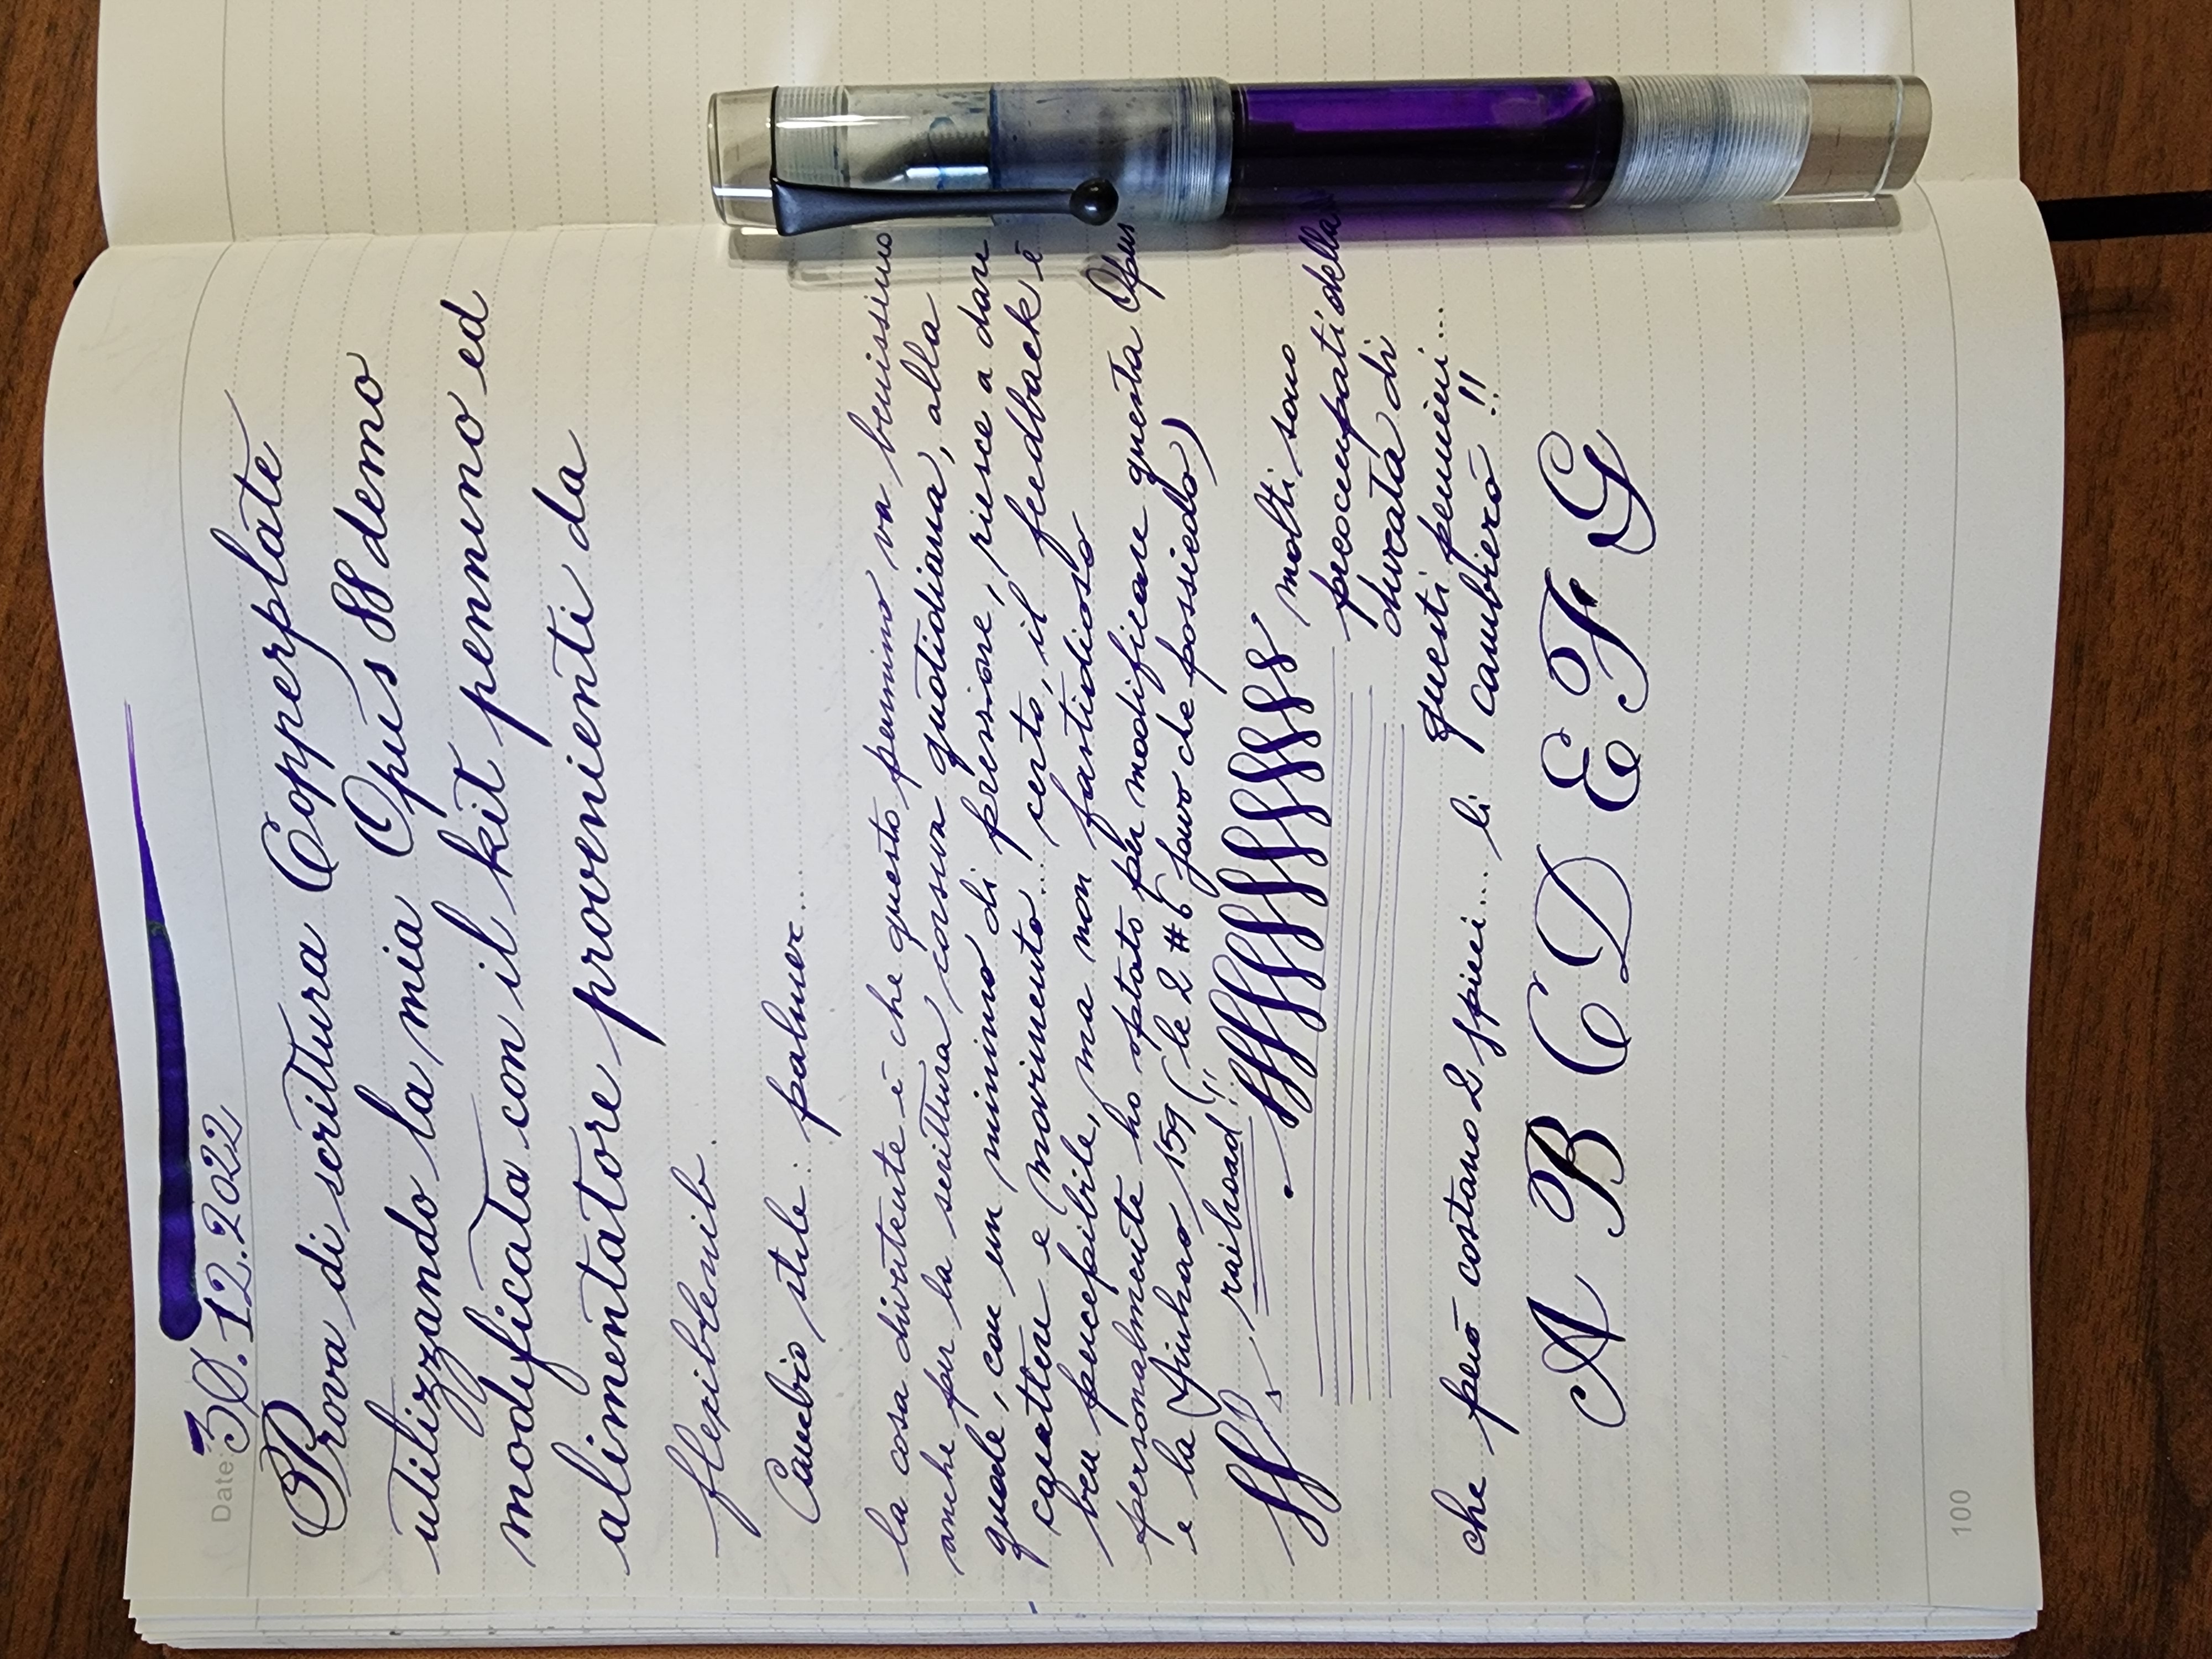 Date 30.12.2022
Prova di scrittura Copperplate
utilizzando la mia Opus 88 demo
modificata con il kit pennino ed
alimentatore provenienti da
flexiblenib.
Cambio stile: palmer...
la cosa divertente è che questo pennino va benissimo
anche per la scrittura corsiva quotidiana, alla
quale, con un minimo di pressione, riesce a dare
carattere e movimento... certo, il feedback è
ben percepibile, ma non fastidioso
personalmente ho optato per modificare questa Opus
e la Jinhao 159 (le 2 #6 favo che possiedo)
railroad!!
molti sono
preoccupati della
durata di
questi pennini...
che però costano 2 spicci... li cambierò!!
A B C D E F G
100